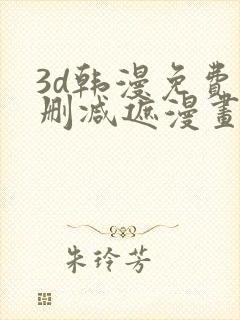 3d韩漫免费
删减遮漫畫
朱玲芳